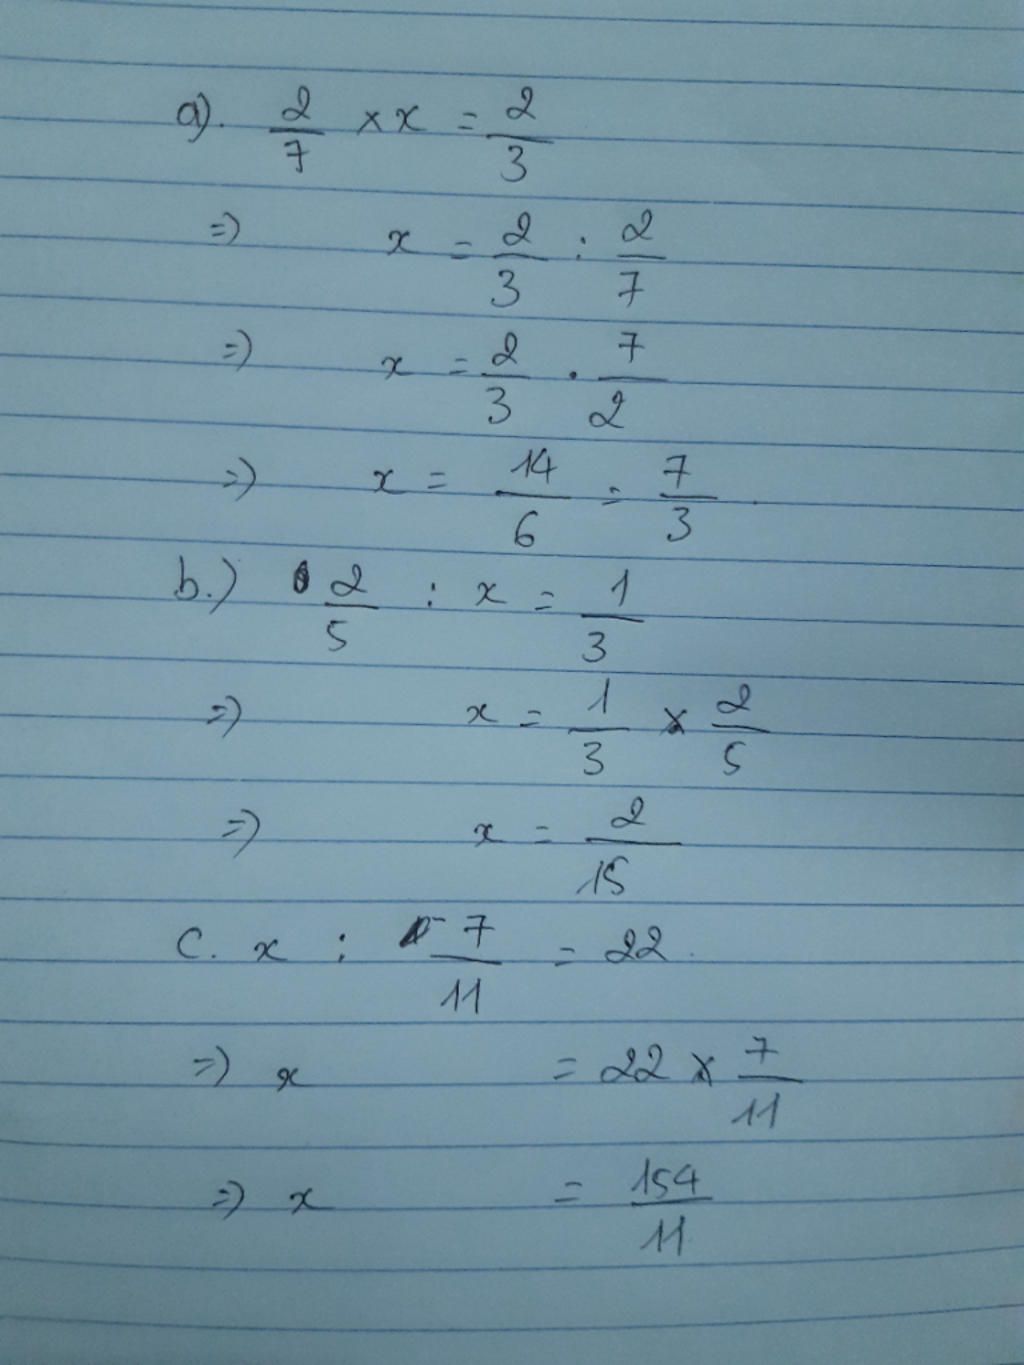 a). 2/7 × x = 2/3
=) x = 2/3 : 2/7
=) x = 2/3 . 7/2
=) x = 14/6 = 7/3 .
b.) 2/5 : x = 1/3
=) x = 1/3 × 2/5
=) x = 2/15
c. x : 7/11 = 22.
=) x = 22 × 7/11
=) x = 154/11